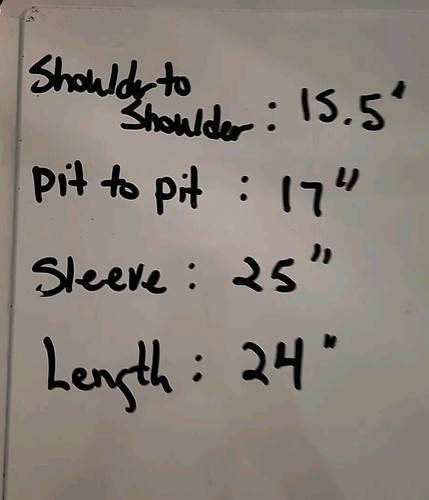 Shoulder to
Shoulder : 15.5'
Pit to pit : 17"
Sleeve : 25"
Length : 24"